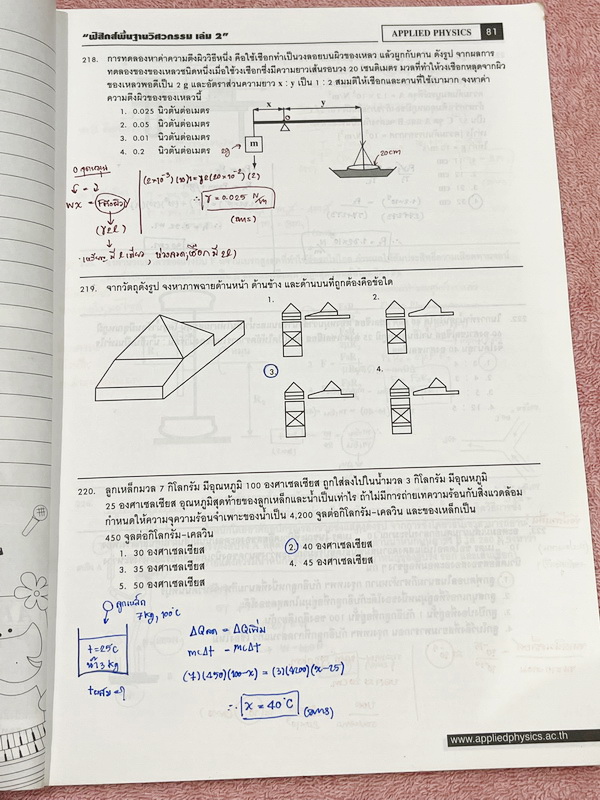 "ฟิสิกส์พื้นฐานวิศวกรรม เล่ม 2"
APPLIED PHYSICS 81
218. การทดลองหาค่าความตึงผิววิธีหนึ่ง คือใช้เชือกทำเป็นวงลอยบนผิวของเหลว แล้วผูกกับคาน ดังรูป จากผลการ
ทดลองของของเหลวชนิดหนึ่งเมื่อใช้วงเชือกซึ่งมีความยาวเส้นรอบวง 20 เซนติเมตร มวลที่ทำให้วงเชือกหลุดจากผิว
ของเหลวพอดีเป็น 2 g และอัตราส่วนความยาว x : y เป็น 1 : 2 สมมติให้เชือกและคานที่ใช้เบามาก จงหาค่า
ความตึงผิวของของเหลวนี้
1. 0.025 นิวตันต่อเมตร
2. 0.05 นิวตันต่อเมตร
3. 0.01 นิวตันต่อเมตร
4. 0.2 นิวตันต่อเมตร
x y
m
2g
20cm
(2×10⁻³)(10)1 = γ2(20×10⁻²)(2)
∴ γ = 0.025 N/m
(γ2l)
219. จากวัตถุดังรูป จงหาภาพฉายด้านหน้า ด้านข้าง และด้านบนที่ถูกต้องคือข้อใด
1.
2.
3.
4.
220. ลูกเหล็กมวล 7 กิโลกรัม มีอุณหภูมิ 100 องศาเซลเซียส ถูกใส่ลงไปในน้ำมวล 3 กิโลกรัม มีอุณหภูมิ
25 องศาเซลเซียส อุณหภูมิสุดท้ายของลูกเหล็กและน้ำเป็นเท่าไร ถ้าไม่มีการถ่ายเทความร้อนกับสิ่งแวดล้อม
กำหนดให้ความจุความร้อนจำเพาะของน้ำเป็น 4,200 จูลต่อกิโลกรัม-เคลวิน และของเหล็กเป็น
450 จูลต่อกิโลกรัม-เคลวิน
1. 30 องศาเซลเซียส
2. 40 องศาเซลเซียส
3. 35 องศาเซลเซียส
4. 45 องศาเซลเซียส
5. 50 องศาเซลเซียส
ลูกเหล็ก
7kg, 100°C
t=25°C
น้ำ 3 kg
tผสม=?
ΔQลด = ΔQเพิ่ม
mcΔt = mcΔt
(7)(450)(100-x) = (3)(4200)(x-25)
∴ x = 40°C
www.appliedphysics.ac.th